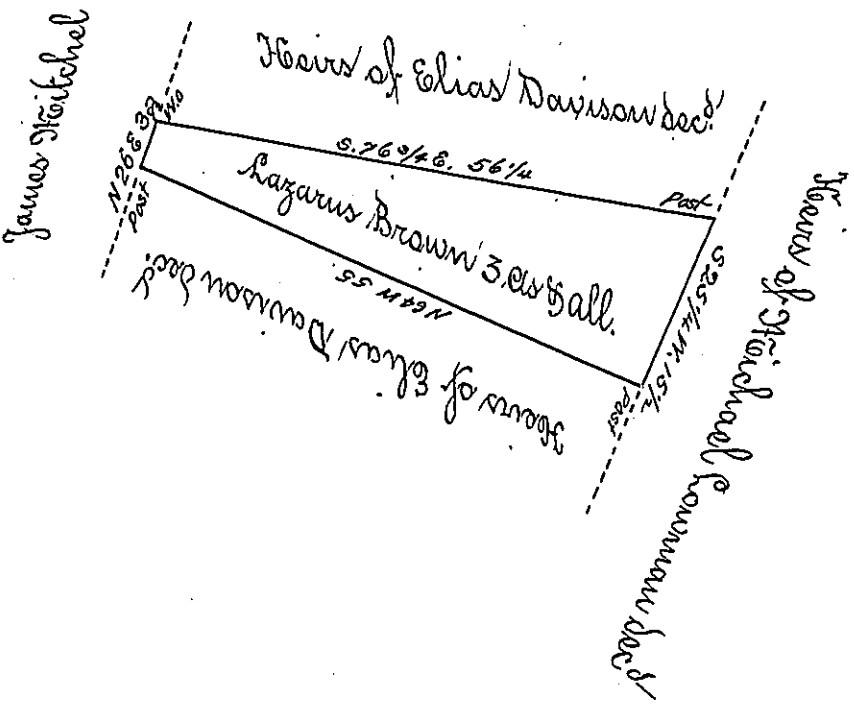 Heirs of Elias Davison dec.d
James Mitchel
N 26 E 3
W.O
Post
S. 76 3/4 E. 56 1/4
Post
Lazarus Brown 3. as & all.
N 64 W 55
S 25 1/4 W. 15 1/2
Post
Heirs of Elias Davison dec.d
Heirs of Michael Lowman dec.d